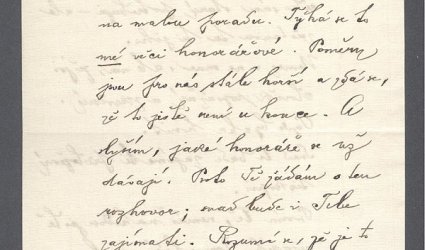 na malou poradu. Týká se to
mé věci honorářové. Poměry
jsou pro nás stále horší a zdá se,
že to ještě není u konce. A
slyším, jaké honoráře se už
dávají. Proto Tě žádám o ten
rozhovor; snad bude i Tebe
zajímati. Rozumí se, že je to